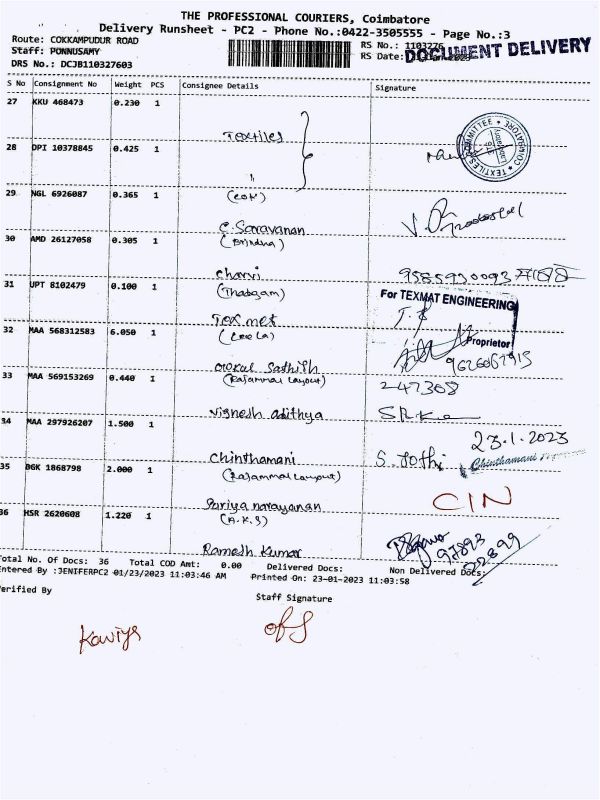 THE PROFESSIONAL COURIERS, Coimbatore
Delivery Runsheet - PC2 - Phone No.:0422-3505555 - Page No.:3
Route: COKKAMPUDUR ROAD
Staff: PONNUSAMY
DRS No.: DCJB110327603
RS No.: 1103276
RS Date:
DOCUMENT DELIVERY
S No Consignment No Weight PCS Consignee Details Signature
27 KKU 468473 0.230 1
Textiles
28 DPI 10378845 0.425 1
"
COMMITTEE COIMBATORE TEXTILES
29 NGL 6926087 0.365 1
C. Saravanan
30 AMD 26127058 0.305 1
(Brindha)
charvi
31 UPT 8102479 0.100 1
(Thadagam)
For TEXMAT ENGINEERING
Proprietor
32 MAA 568312583 6.050 1
(Leela)
Gokul Sathith
9626067915
33 MAA 569153269 0.440 1
(Rajammal Layout)
247368
Vignesh adithya
34 MAA 297926207 1.500 1
23.1.2023
Chinthamani
S. Jothi
Chinthamani
35 BGK 1868798 2.000 1
(Rajammal Layout)
CIN
Suriya narayanan
36 HSR 2620608 1.220 1
(A.K.S)
Ramesh Kumar
Total No. Of Docs: 36 Total COD Amt: 0.00 Delivered Docs: Non Delivered Docs:
Entered By :JENIFERPC2 01/23/2023 11:03:46 AM Printed On: 23-01-2023 11:03:58
Verified By
Staff Signature
Kaviya